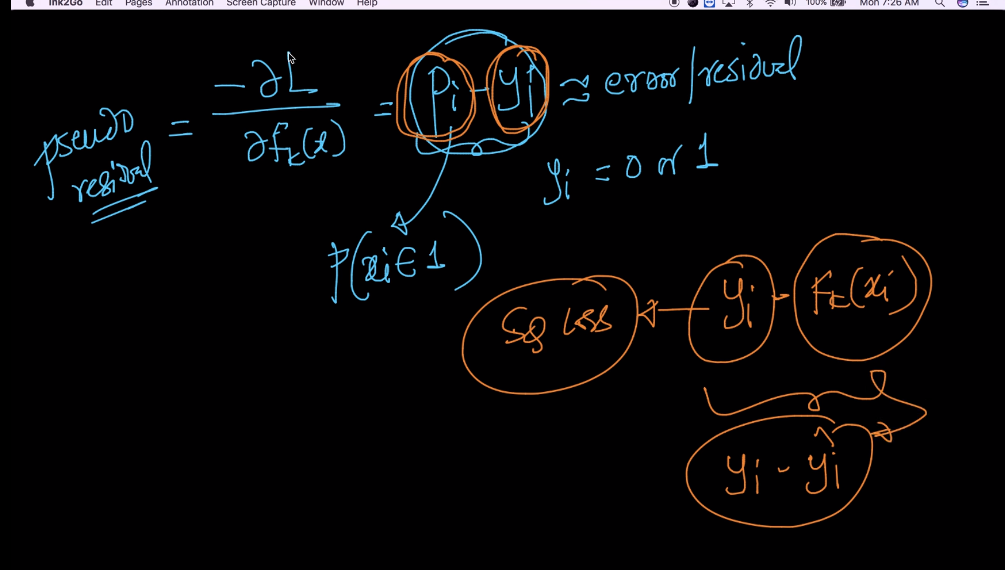 Ink2Go Edit Pages Annotation Screen Capture Window Help 100% Mon 7:26 AM
pseudo residual = -∂L / ∂fₖ(x) = pᵢ - yᵢ ≈ error/residual
yᵢ = 0 or 1
P(xᵢ ∈ 1)
Sq loss ← yᵢ - Fₖ(xᵢ)
yᵢ - ŷᵢ